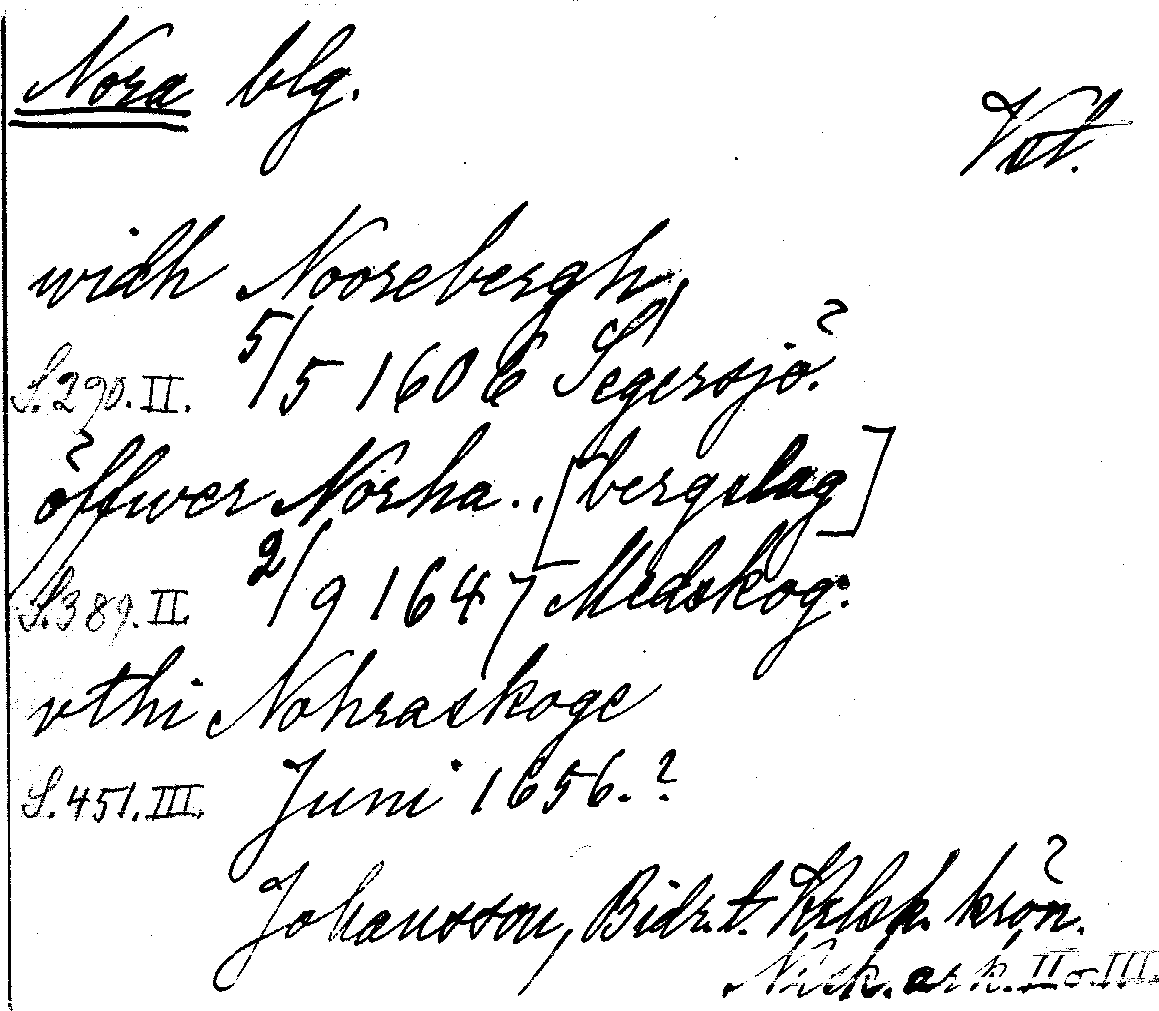 Nora blg.
Vst.
widh Noorebergh,
S. 290. II. 5/5 1606 Segersjö.
öffwer Norha.. [bergslag]
S. 389. II. 2/9 1647 Medskog.
vthi Nohraskoge
S. 451. III. Juni 1656.?
Johansson, Bidr. t. krön.
ark. II o. III.